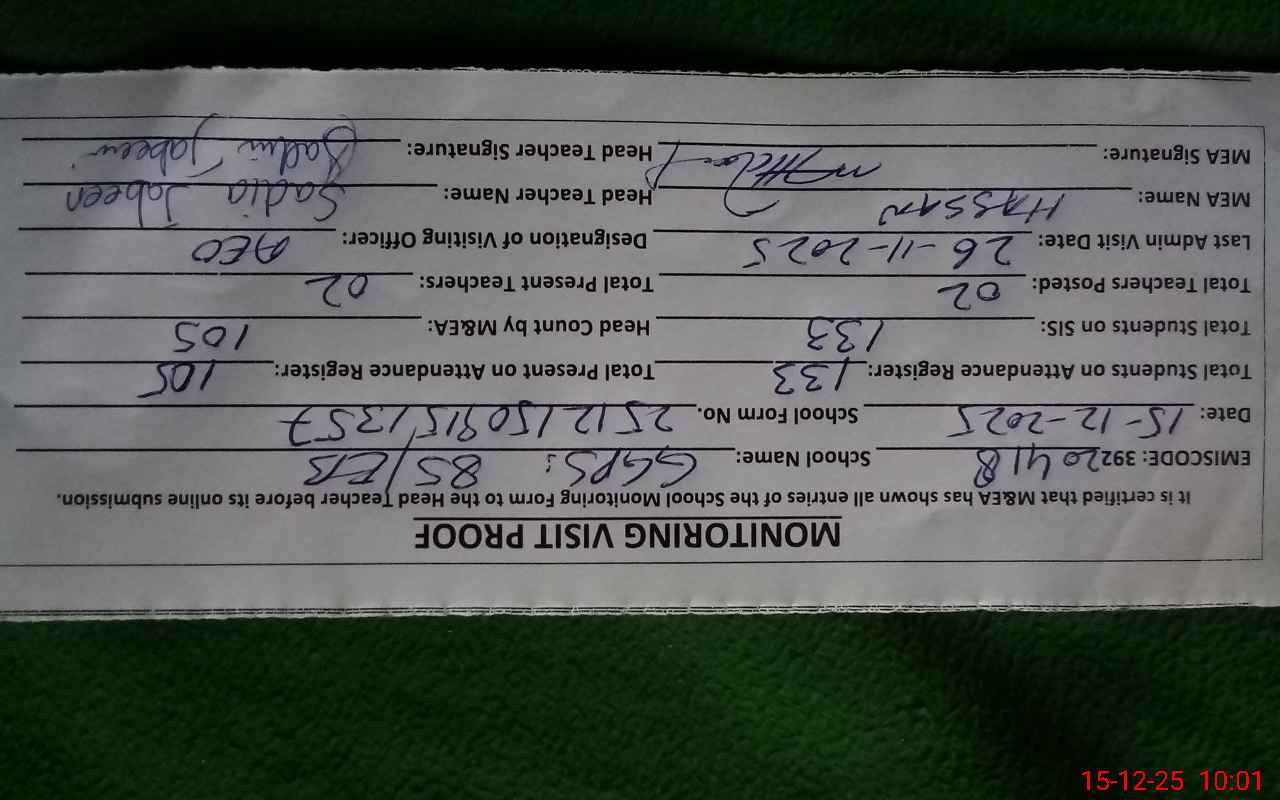 MONITORING VISIT PROOF
It is certified that M&EA has shown all entries of the School Monitoring Form to the Head Teacher before its online submission.
EMISCODE: 39220418 School Name: GGPS: 85/EB
Date: 15-12-2025 School Form No. 25121509151357
Total Students on Attendance Register: 133 Total Present on Attendance Register: 105
Total Students on SIS: 133 Head Count by M&EA: 105
Total Teachers Posted: 02 Total Present Teachers: 02
Last Admin Visit Date: 26-11-2025 Designation of Visiting Officer: AEO
MEA Name: HASSAN Head Teacher Name: Sadia Jabeen
MEA Signature: Head Teacher Signature: Sadia Jabeen
15-12-25 10:01